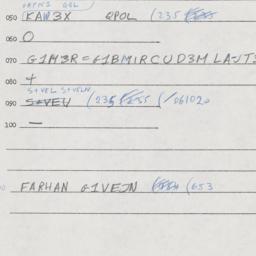 050 KAW3X QPOL (235
060 O
070 G1M3R=G1BMIRCUD3M LAJTS
080 +
S+VEL S+VELN
090 S+VEU (235 (/061020
100 —
FARHAN G1VEJN (653